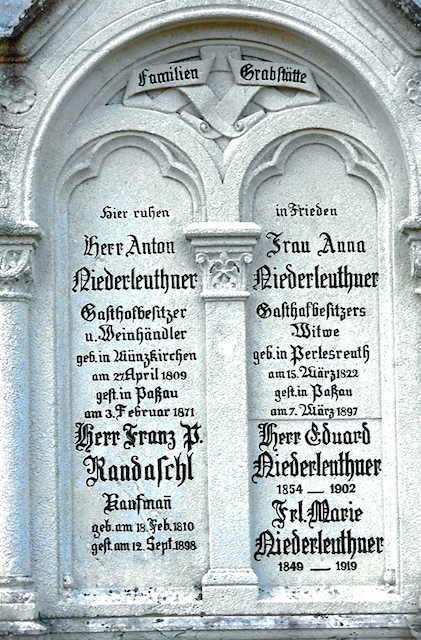 Familien Grabstätte
Hier ruhen
Herr Anton
Niederleuthner
Gasthofbesitzer
u. Weinhändler
geb. in Münzkirchen
am 27 April 1809
gest. in Paßau
am 3. Februar 1871
Herr Franz P.
Randaschl
Kaufman̄
geb. am 18. Feb. 1810
gest. am 12. Sept. 1898
in Frieden
Frau Anna
Niederleuthner
Gasthofbesitzers
Witwe
geb. in Perlesreuth
am 15. März 1822
gest. in Paßau
am 7. März 1897
Herr Eduard
Niederleuthner
1854 — 1902
Frl. Marie
Niederleuthner
1849 — 1919